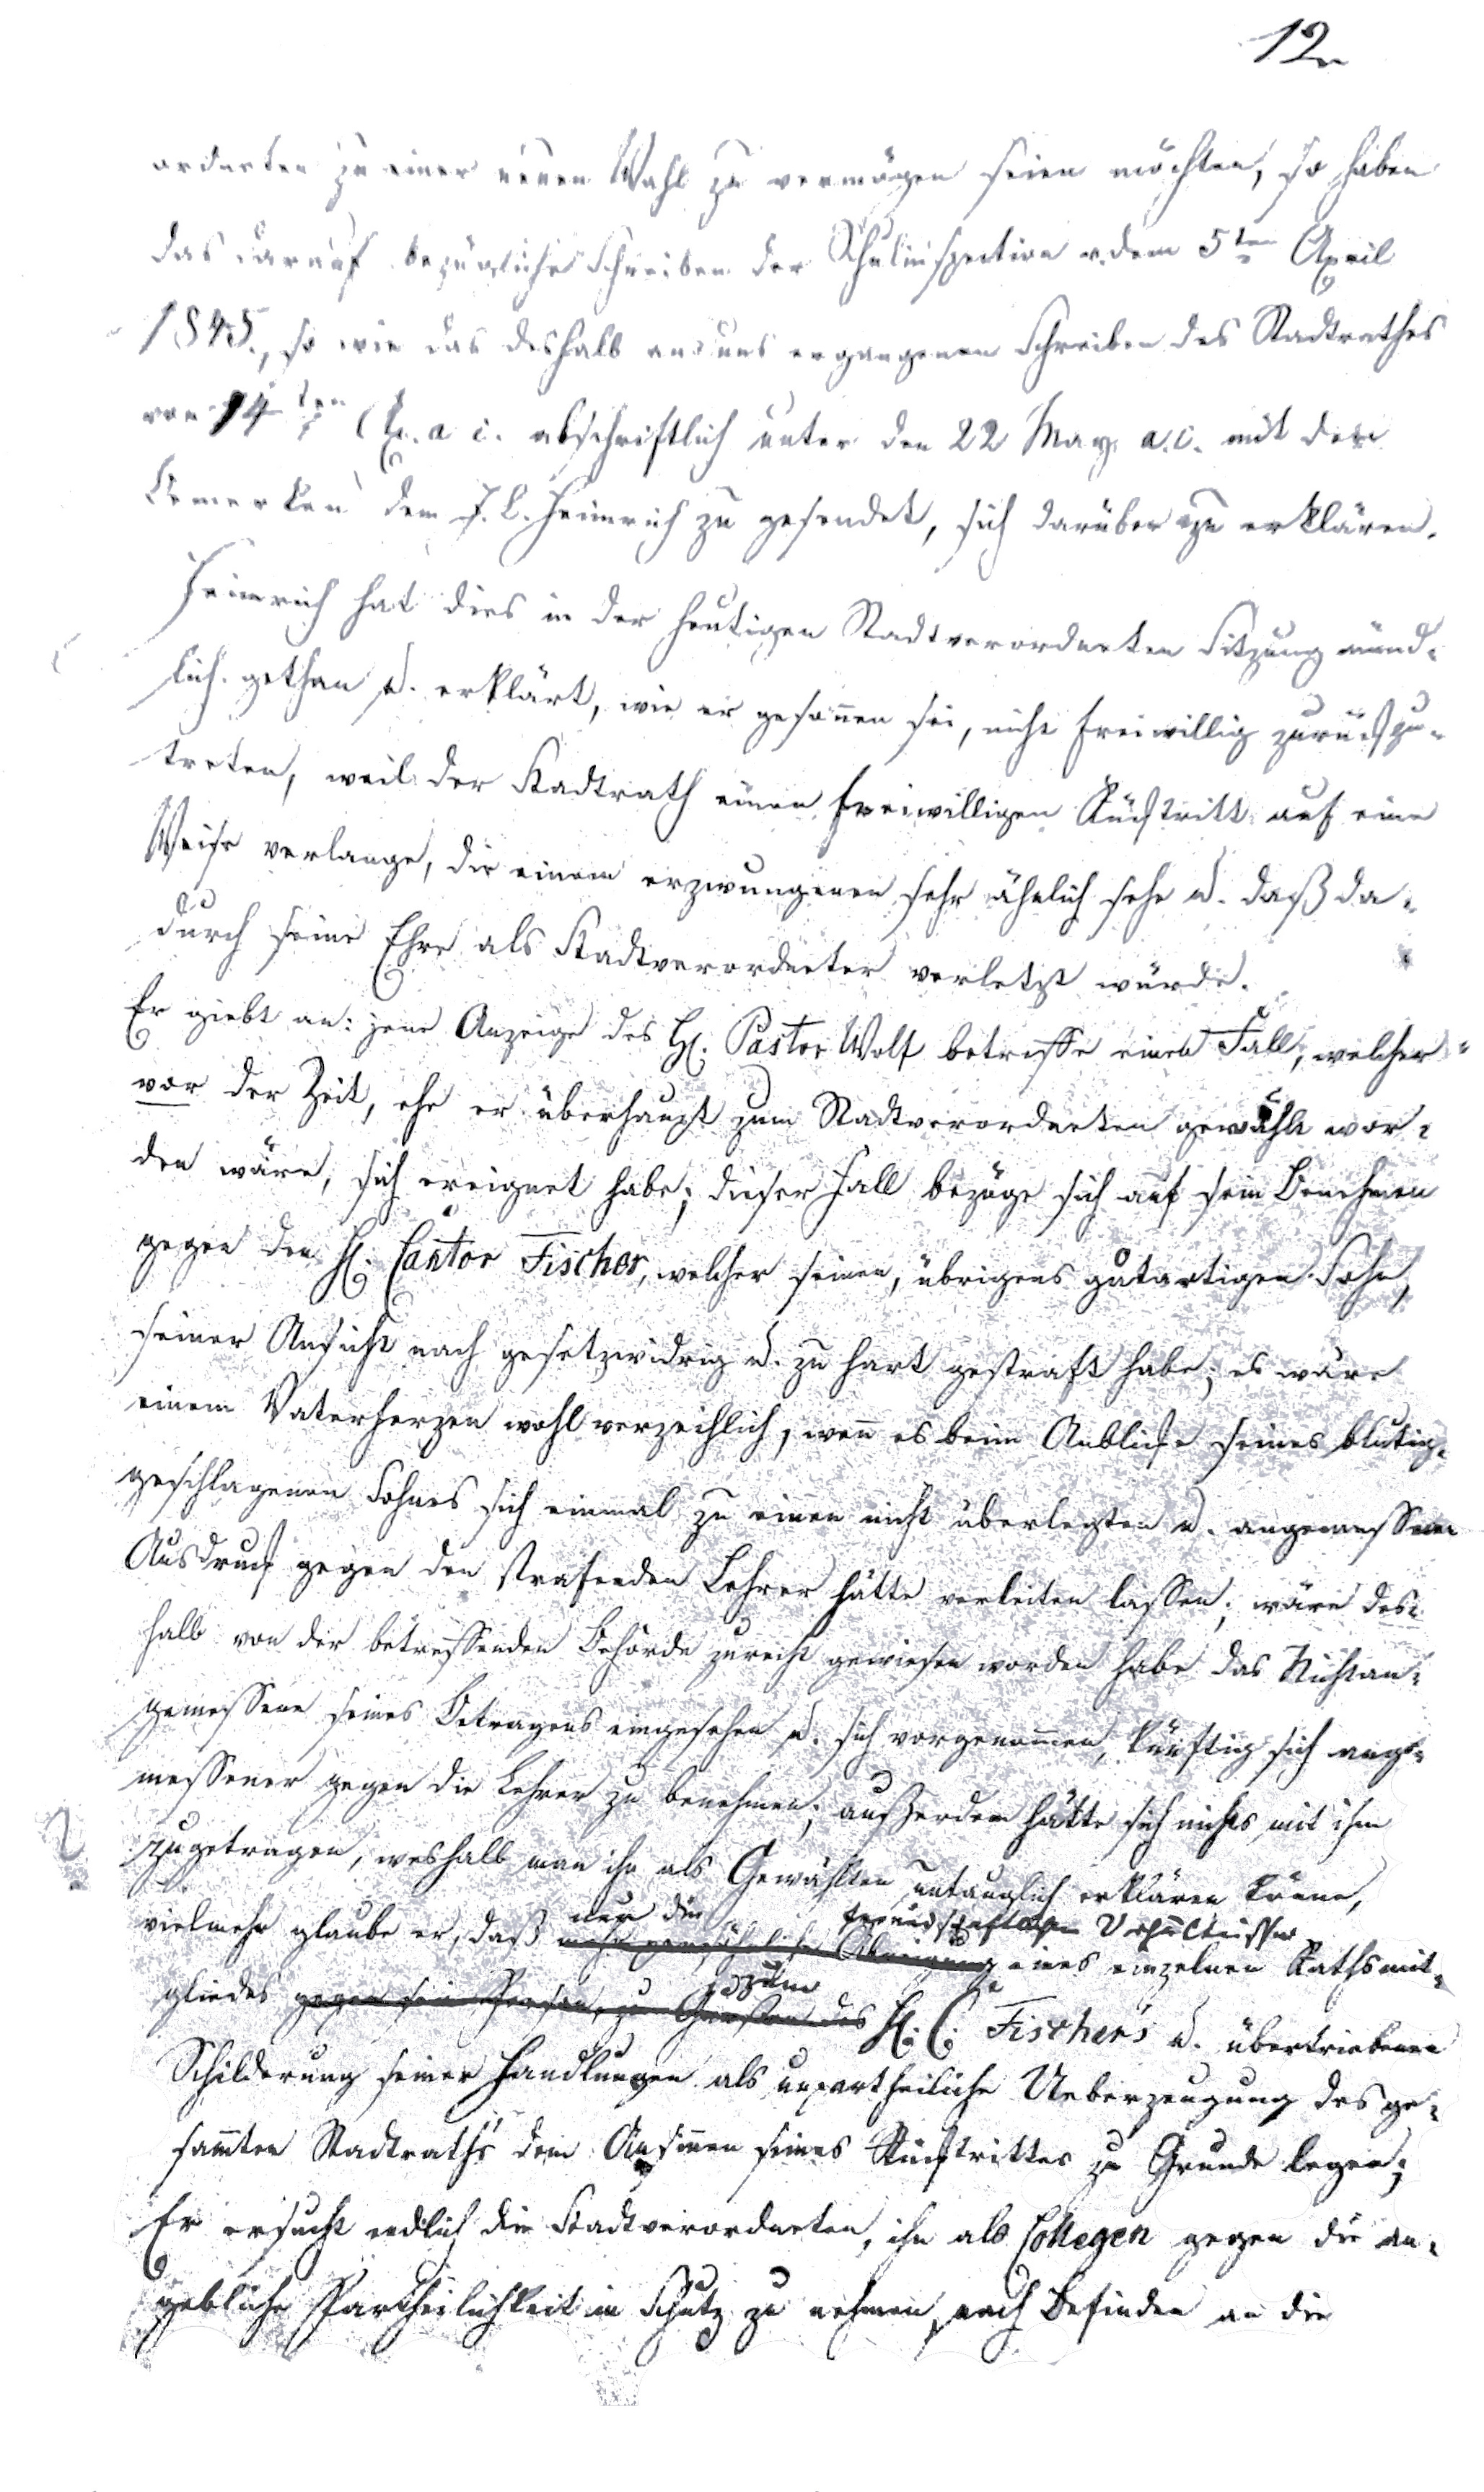 12.
ordneten zu einer neuen Wahl zu vermögen seien möchten, so haben
das darauf bezügliche Schreiben der Schulinspection v. dem 5ten April
1845., so wie das deshalb an uns ergangenen Schreiben des Stadtrathes
von 14ten a. c. abschriftlich unter den 22 May. a. c. mit den
Bemerken dem J. L. Heinrich zu gesendet, sich darüber zu erklären.
Heinrich hat dies in der heutigen Stadtverordneten Sitzung münd-
lich gethan u. erklärt, wie er gesoñen sei, nicht freiwillig zurückzu-
treten, weil der Stadtrath einen freiwilligen Rücktritt auf eine
Weise verlange, die einem erzwungenen sehr ähnlich sehe u. daß da-
durch seine Ehre als Stadtverordneter verletzt würde.
Er giebt an: jene Anzeige des H. Pastor Wolf betreffe einen Fall, welcher
vor der Zeit, ehe er überhaupt zum Stadtverordneten gewählt wor-
den wäre, sich ereignet habe; dieser Fall bezöge sich auf sein Benehmen
gegen den H. Cantor Fischer, welcher seinen, übrigens gutartigen Sohn,
seiner Ansicht nach gesetzwidrig u. zu hart gestraft habe; es wäre
einem Vaterherzen wohl verzeihlich, weñ es beim Anblicke seines blutig-
geschlagenen Sohnes sich einmal zu einen nicht überlegten u. angemessenen
Ausdruck gegen den strafenden Lehrer hätte verleiten lassen; wäre des-
halb von der betreffenden Behörde zurecht gewiesen worden habe das Nichtan-
gemessene seines Betragens eingesehen u. sich vorgenom̃en, künftig sich ange-
messener gegen die Lehrer zu benehmen; außerdem hätte sich nichts mit ihm
zugetragen, weshalb man ihn als Gewählten untauglich erklären könne,
nur die freundschaftlichen Verhältnisse
vielmehr glaube er, daß persönliche Abneigung eines einzelnen Rathsmit-
zum
gliedes gegen sein Person, zu Gunsten des H. C. Fischer's u. übertriebenen
Schilderung seiner Handlungen als unpartheiliche Ueberzeugung des ge-
sam̃ten Stadtraths dem Ansinnen seines Rücktrittes zu Grunde legen;
Er ersucht endlich die Stadtverordneten, ihn als Collegen gegen die an-
gebliche Partheilichkeit in Schutz zu nehmen, nach Befinden an die